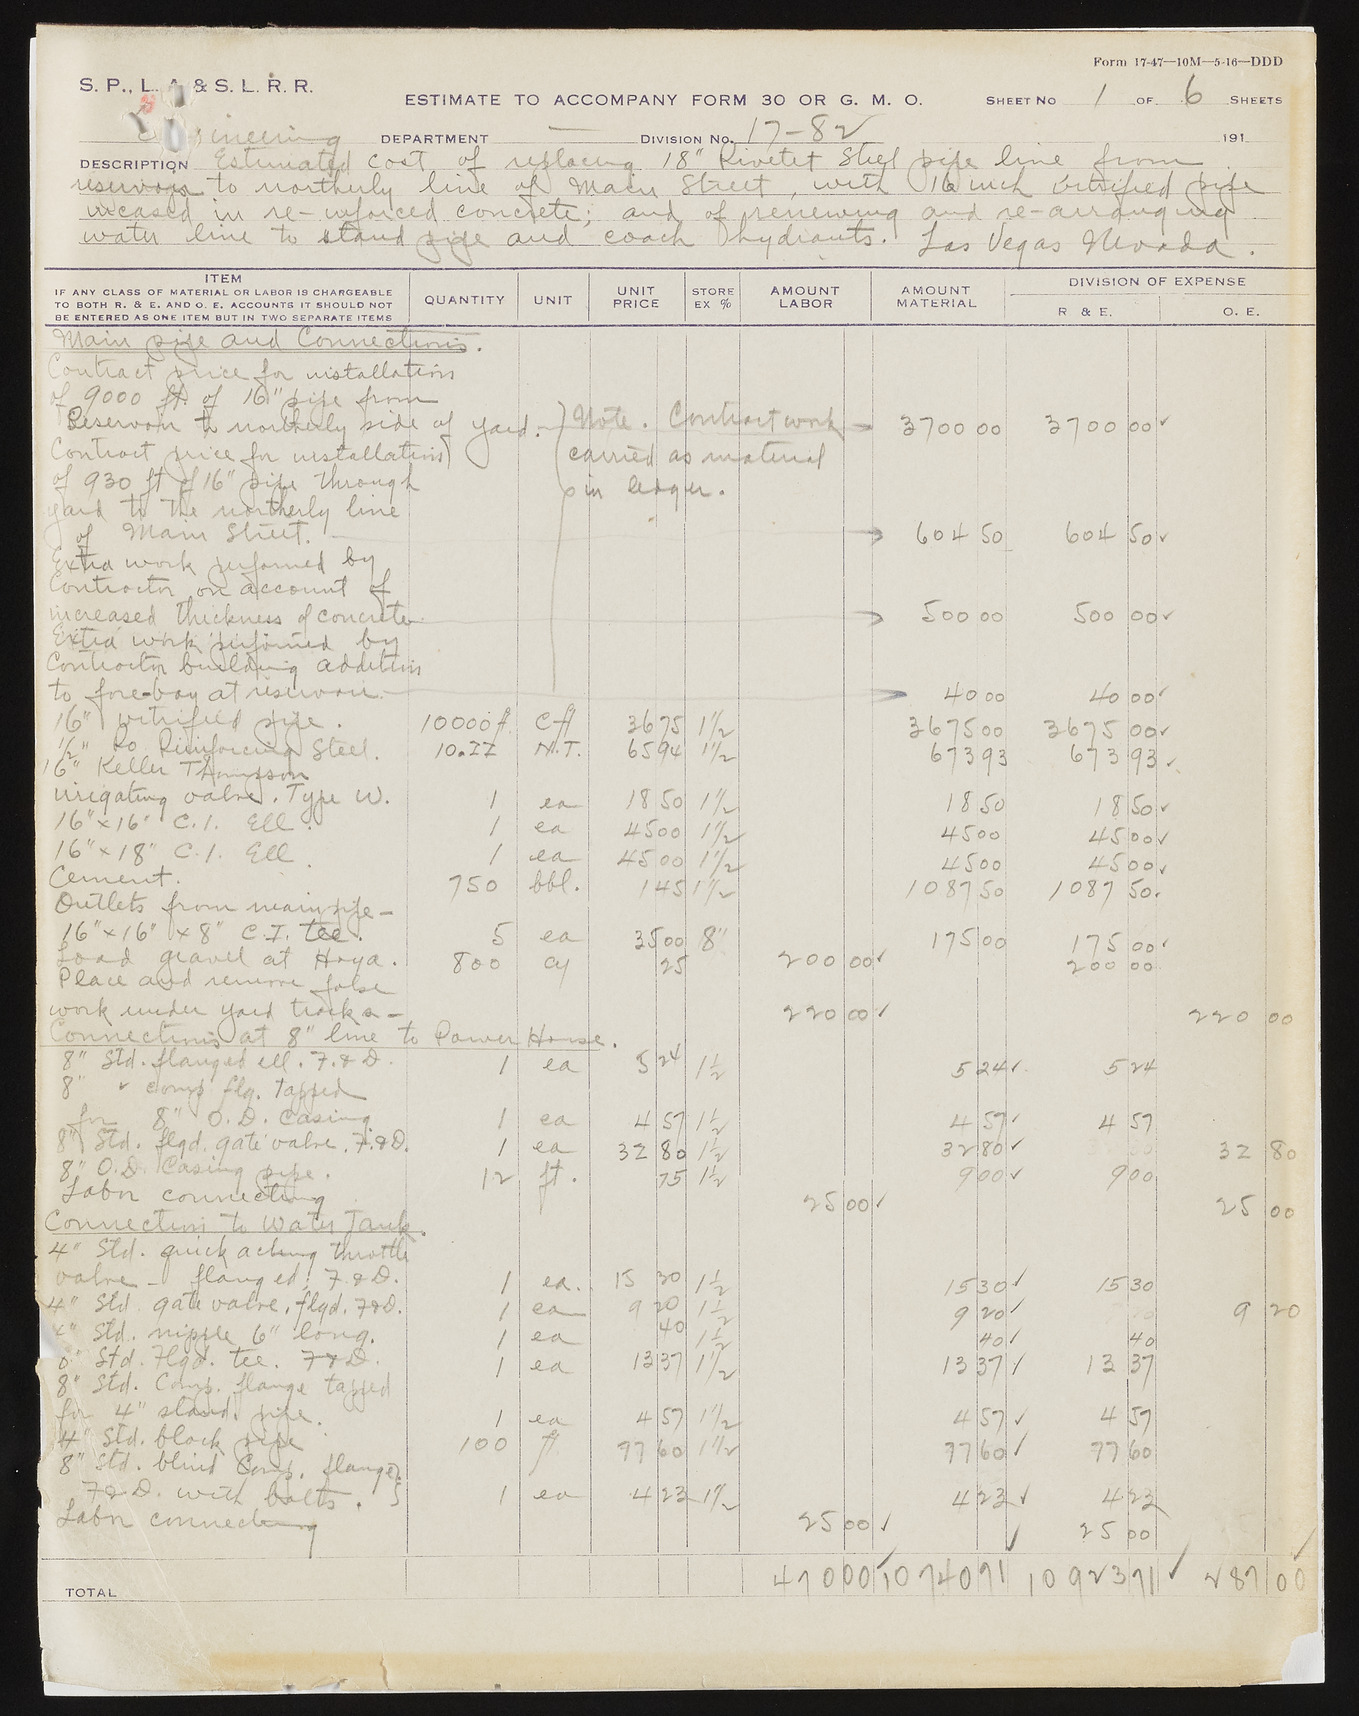 Form 17-47—10M—5-16—DDD
S. P., L. A. & S. L. R. R.
ESTIMATE TO ACCOMPANY FORM 30 OR G. M. O. SHEET NO 1 OF 6 SHEETS
Engineering DEPARTMENT — DIVISION NO. 17-82 191
DESCRIPTION Estimated cost of replacing 18" Rivetet Steel pipe line from
reservoir to northerly line of Main Street, with 16 inch vitrified pipe
incased in re-inforced concrete; and of renewing and re-arranging
water line to stand pipe and coach hydrants. Las Vegas Nevada.
ITEM
IF ANY CLASS OF MATERIAL OR LABOR IS CHARGEABLE
TO BOTH R. & E. AND O. E. ACCOUNTS IT SHOULD NOT
BE ENTERED AS ONE ITEM BUT IN TWO SEPARATE ITEMS
QUANTITY UNIT UNIT PRICE STORE EX % AMOUNT LABOR AMOUNT MATERIAL DIVISION OF EXPENSE
R & E. O. E.
Main pipe and Connections.
Contract price for installation
of 9000 ft. of 16" pipe from
Reservoir to northerly side of yard. Note. Contract work 3700 00 3700 00
Contract price for installation carried as material
of 930 ft of 16" pipe through in ledger.
yard to the northerly line
of Main Street. 604 50 604 50
Extra work performed by
Contractor on account of
increased thickness of concrete 500 00 500 00
Extra work performed by
Contractor building addition
to fore-bay at reservoir. 40 00 40 00
16" vitrified pipe. 10000 ft. C ft 36 75 1½ 3675 00 3675 00
½" Ro. Reinforcing Steel. 10.22 N.T. 65 94 1½ 673 93 673 93
16" Keller Thompson
irrigating valve. Type W. 1 ea 18 50 1½ 18 50 18 50
16"x16" C.I. Ell. 1 ea 45 00 1½ 45 00 45 00
16"x18" C.I. Ell. 1 ea 45 00 1½ 45 00 45 00
Cement. 750 bbl. 1 45 1½ 1087 50 1087 50
Outlets from main pipe —
16"x16"x8" C.I. tee. 5 ea 35 00 8" 175 00 175 00
Load gravel at Hoya. 800 cy 25 200 00 200 00
Place and remove false
work under yard tracks — 220 00 220 00
Connections at 8" line to Power House.
8" Std. flanged ell. F. & D. 1 ea 5 24 1½ 5 24 5 24
8" " comp flg. tapped
for 8" O.D. Casing 1 ea 4 57 1½ 4 57 4 57
8" Std. flgd. gate valve. F. & D. 1 ea 32 80 1½ 32 80 32 80
8" O.D. Casing pipe. 12 ft. 75 1½ 9 00 9 00
Labor connecting 25 00 25 00
Connection to Water Tank.
4" Std. quick acting throttle
valve — flanged; F. & D. 1 ea. 15 30 1½ 15 30 15 30
4" Std gate valve, flgd. F&D. 1 ea 9 20 1½ 9 20 9 20
4" Std. nipple 6" long. 1 ea 40 1½ 40 40
8" Std. Flgd. tee. F & D. 1 ea 13 37 1½ 13 37 13 37
8" Std. Comp. flange tapped
for 4" stand pipe. 1 ea 4 57 1½ 4 57 4 57
4" Std. black pipe 100 ft. 77 60 1½ 77 60 77 60
8" Std. blind Comp. flange
F & D. with bolts. 1 ea 4 23 1½ 4 23 4 23
Labor connecting 25 00 25 00
TOTAL 470 00 10740 71 10923 71 287 00